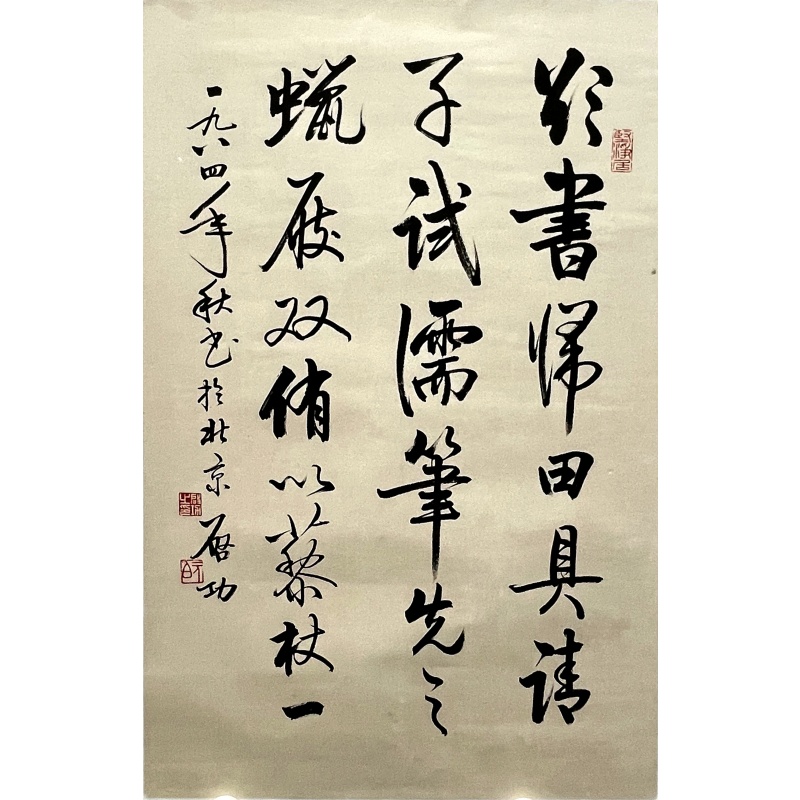 欲書帰田具請
子試濡筆先之
蠟屐双侑以藜杖一
一九八四年秋书於北京
啓功